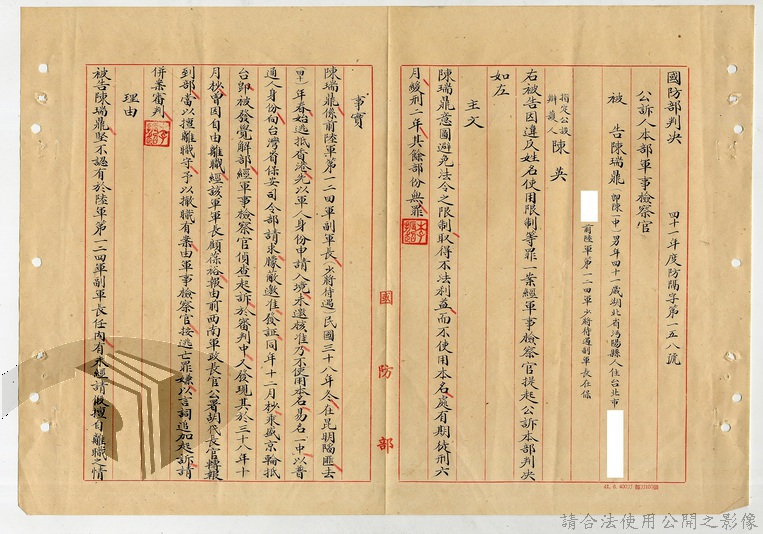 國防部判決　四十一年度防隔字第一五八號
公訴人本部軍事檢察官
被　告陳瑞鼎 即陳一中 男年四十一歲湖北省沔陽縣人住台北市
前陸軍第一二四軍少將待遇副軍長在保
指定公設辯護人陳英
右被告因違反姓名使用限制等罪一案經軍事檢察官提起公訴本部判決
如左
主文
陳瑞鼎意圖避免法令之限制取得不法利益而不使用本名處有期徒刑六
月緩刑二年其餘部份無罪
國防部
事實
陳瑞鼎係前陸軍第一二四軍副軍長（少將待遇）民國三十八年冬在昆明陷匪去
四十年春始逃抵香港先以軍人身份申請入境未邀核准乃不使用本名易名一中以普
通人身份向台灣省保安司令部請求朦蔽邀准發証同年十二月抄乘盛京輪抵
台即被發覺解部經軍事檢察官偵查起訴於審判中又發現其於三十八年十
月抄曾因自由離職經該軍軍長顧葆裕報由前西南軍政長官公署胡代長官轉報
到部當以擅離職守予以撤職有案由軍事檢察官按逃亡罪嫌以言詞追加起訴請
併案審判
理由
被告陳瑞鼎堅不認有於陸軍第一二四軍副軍長任內有未經請假擅自離職之情
請合法使用公開之影像